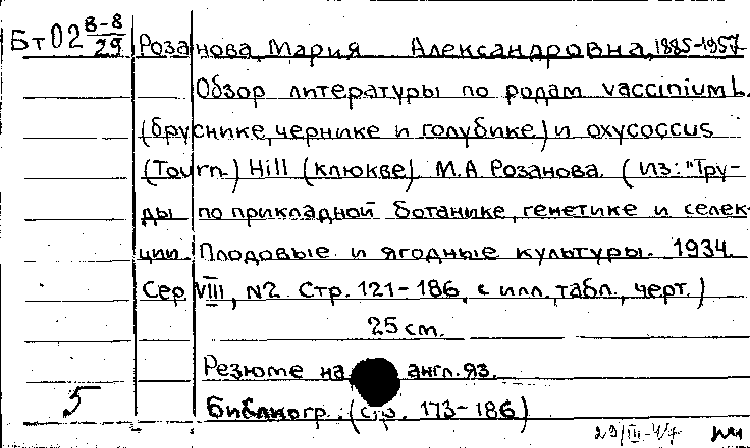 Бт 02 В-8/29
Розанова, Мария Александровна, 1885-1957
Обзор литературы по родам vaccinium L.
(бруснике, чернике и голубике) и oxycoccus
(Tourn.) Hill (клюкве). М.А. Розанова. (Из: "Тру-
ды по прикладной ботанике, генетике и селек-
ции. Плодовые и ягодные культуры. 1934.
Сер. VIII, N2. Стр. 121-186, с илл., табл., черт.)
25 cm.
Резюме на англ. яз.
5 Библиогр.: (стр. 173-186)